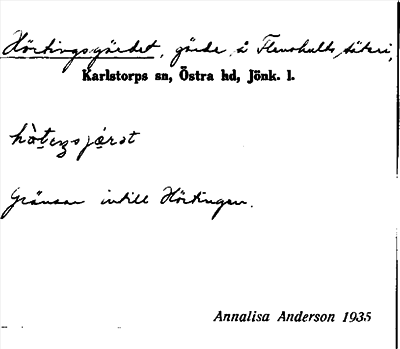 Hörtingsgärdet, gärde å Flenshults säteri,
Karlstorps sn, Östra hd, Jönk. l.
Gränsar intill Hörtingen.
Annalisa Anderson 1935